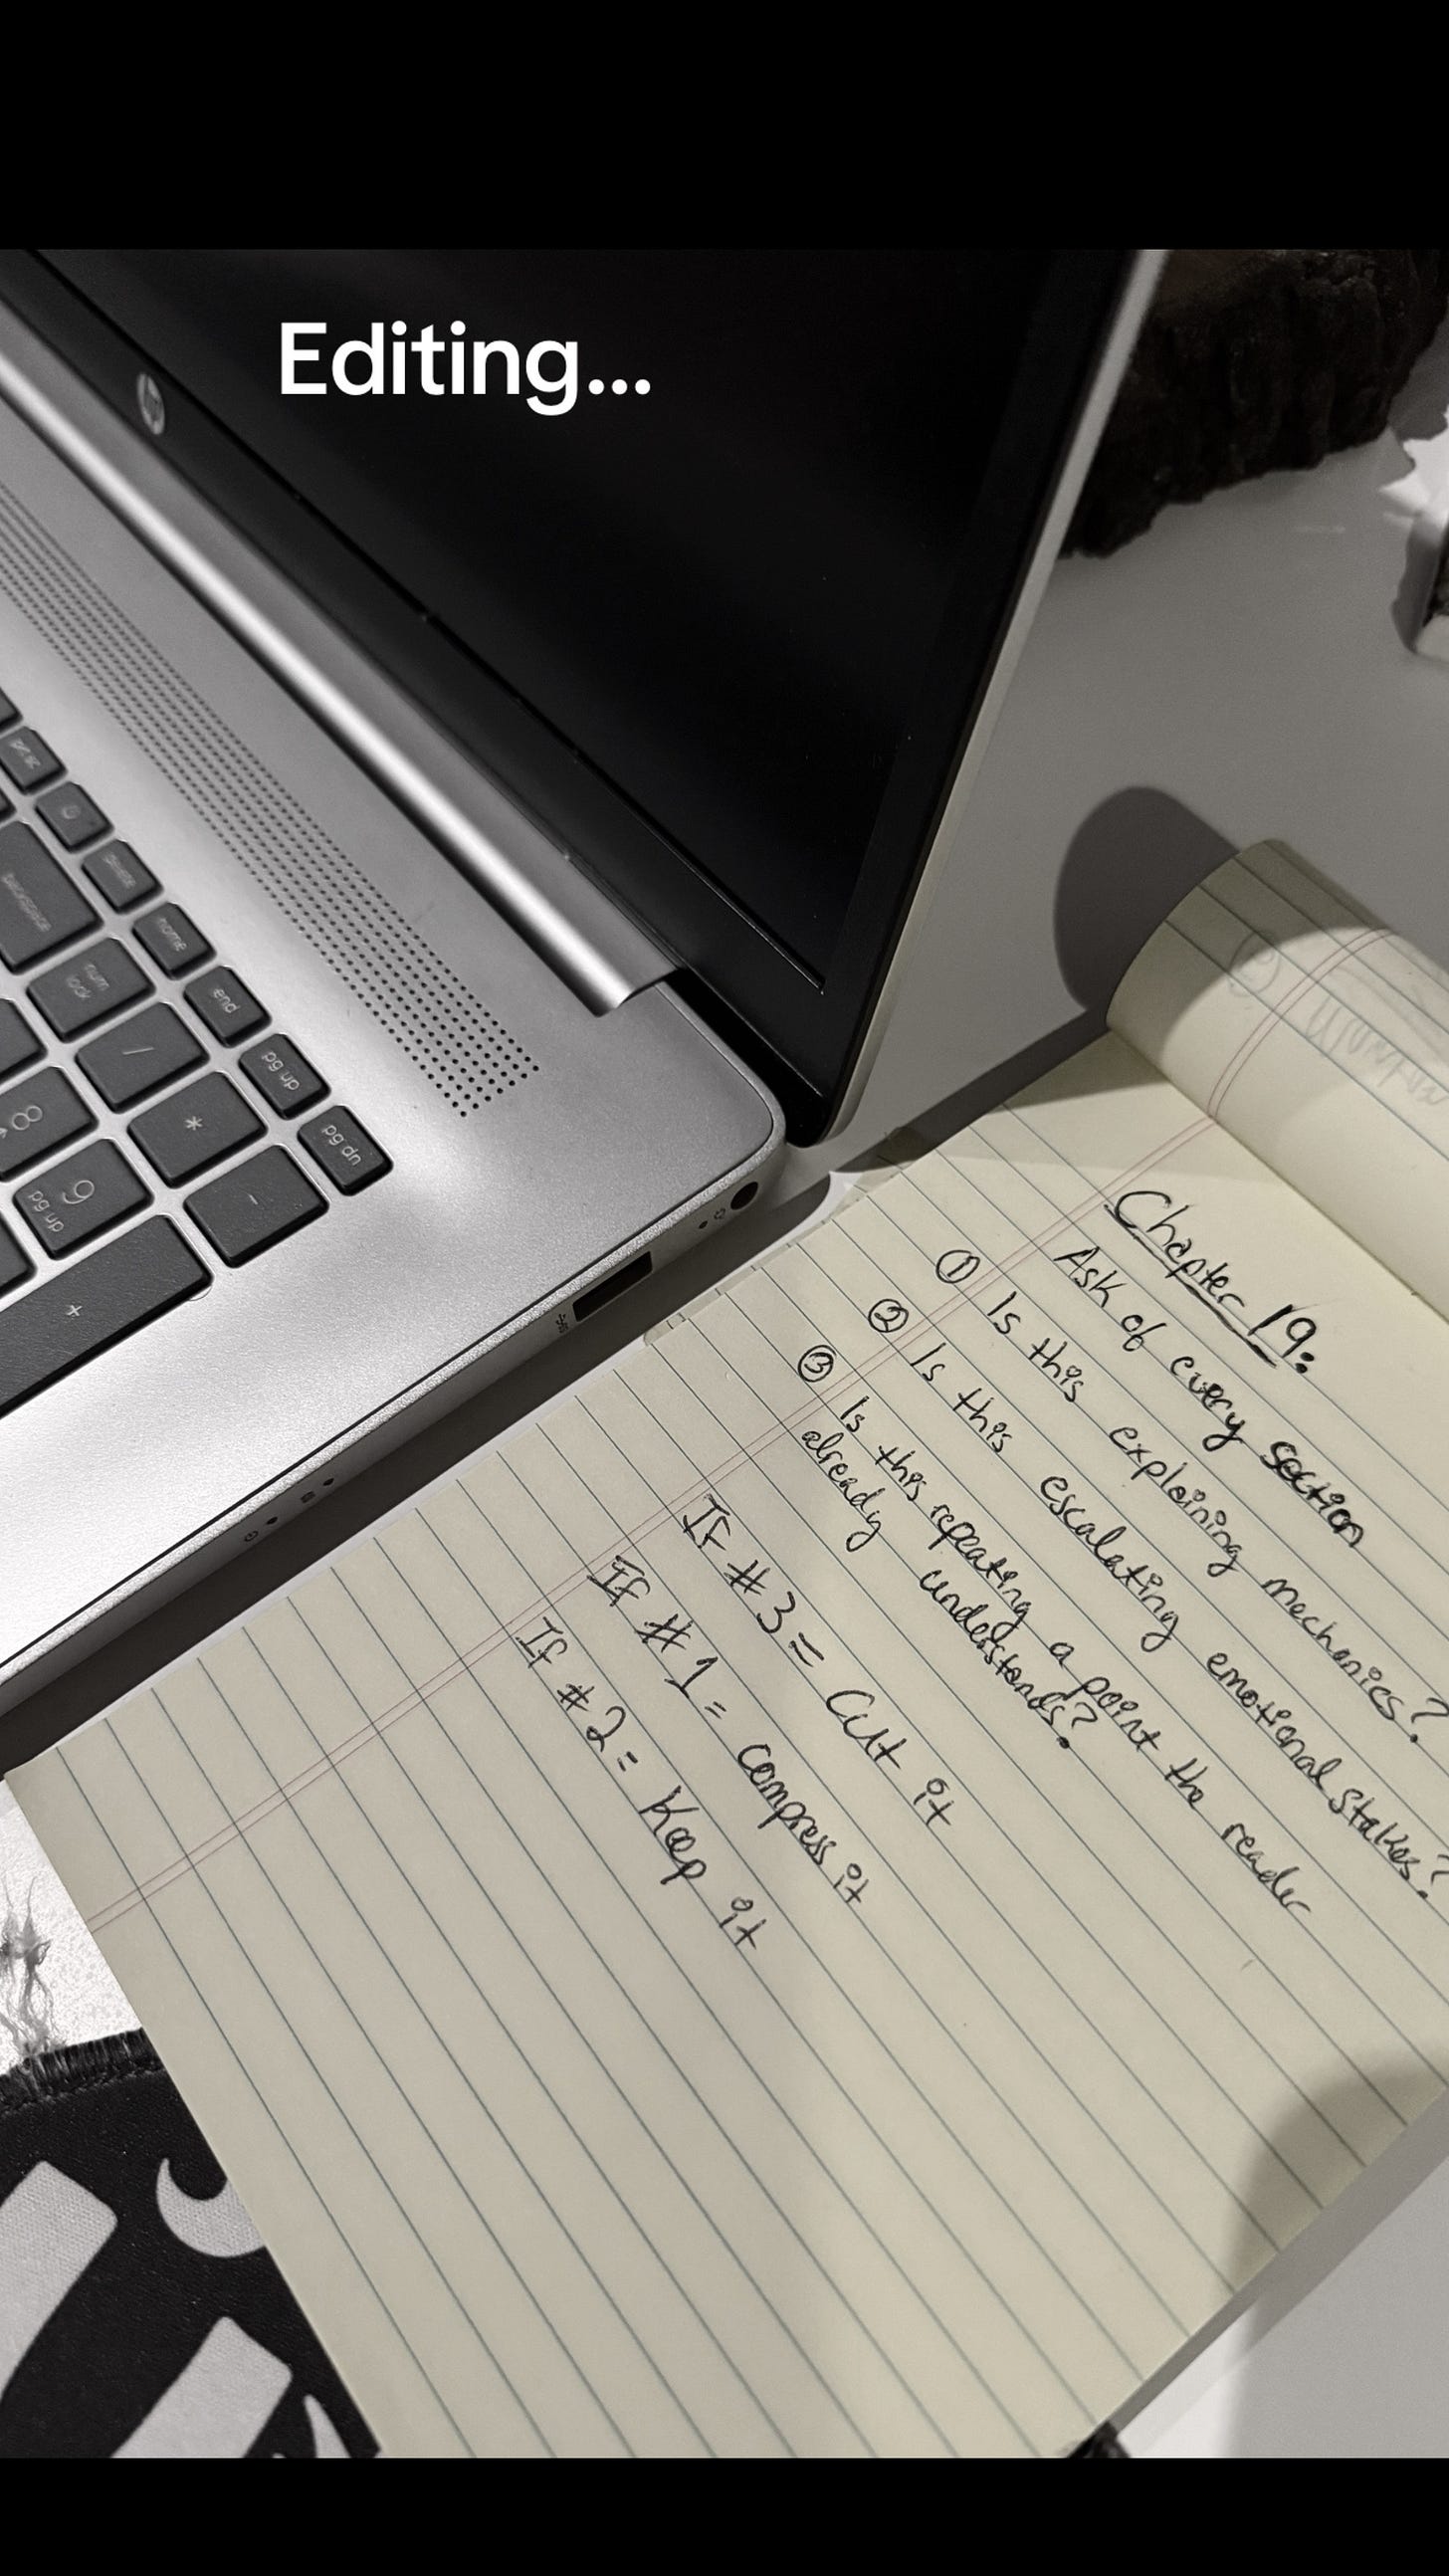 Editing...
hp
prt sc
delete
backspace
home
num
lock
end
/
pg up
8
*
pg dn
9
pg up
-
+
Chapter 19:
Ask of every section
① Is this explaining mechanics?
② Is this escalating emotional stakes?
③ Is this repeating a point the reader
already understands?
If #3 = Cut it
If #1 = compress it
If #2 = Keep it